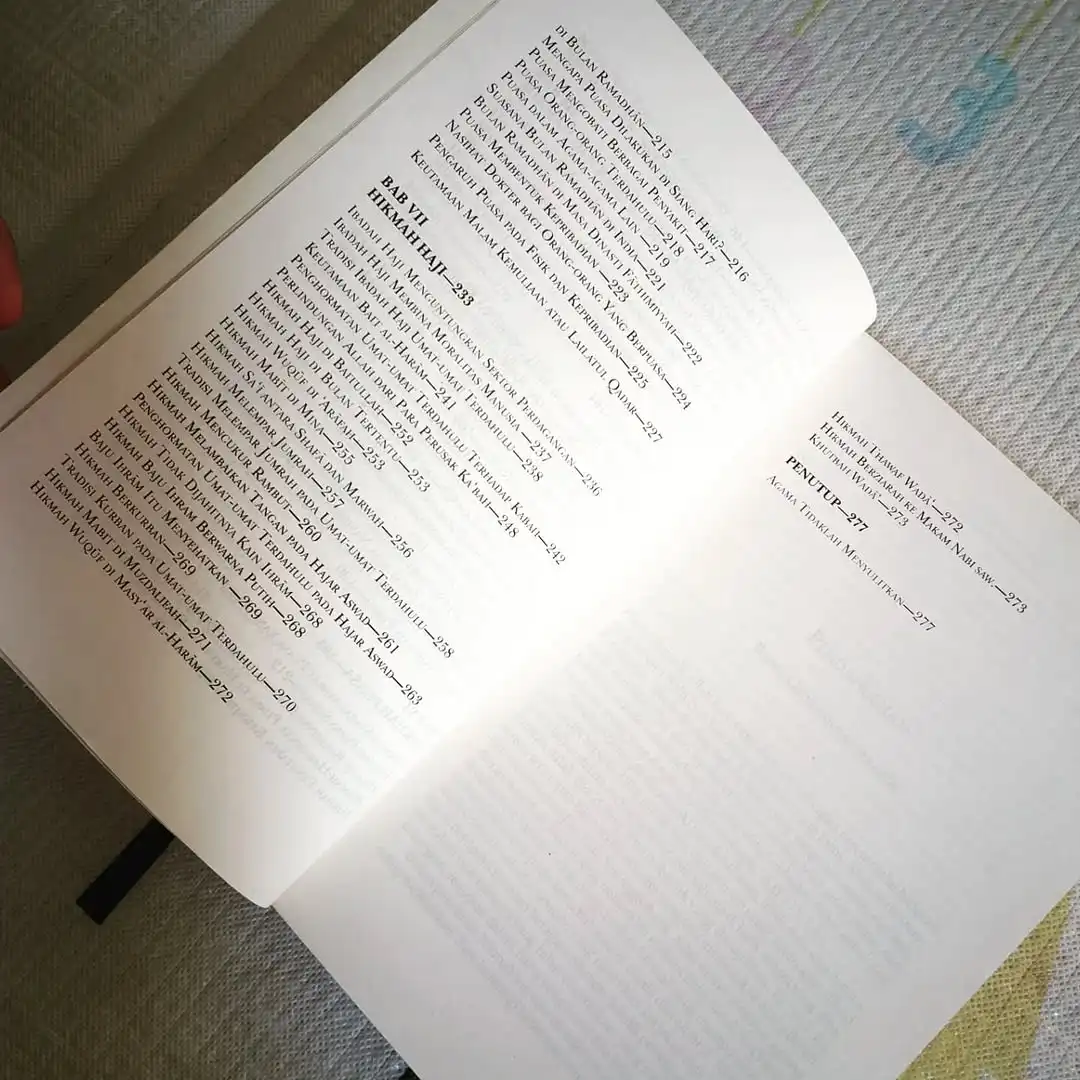 DI BULAN RAMADHÂN—215
MENGAPA PUASA DILAKUKAN DI SIANG HARI?—216
PUASA MENGOBATI BERBAGAI PENYAKIT—217
PUASA ORANG-ORANG TERDAHULU—218
PUASA DALAM AGAMA-AGAMA LAIN—219
SUASANA BULAN RAMADHÂN DI INDIA—221
BULAN RAMADHÂN DI MASA DINASTI FÂTHIMIYYAH—222
PUASA MEMBENTUK KEPRIBADIAN—223
NASIHAT DOKTER BAGI ORANG-ORANG YANG BERPUASA—224
PENGARUH PUASA PADA FISIK DAN KEPRIBADIAN—225
KEUTAMAAN MALAM KEMULIAAN ATAU LAILATUL QADAR—227
BAB VII
HIKMAH HAJI—233
IBADAH HAJI MENGUNTUNGKAN SEKTOR PERDAGANGAN—236
IBADAH HAJI MEMBINA MORALITAS MANUSIA—237
TRADISI IBADAH HAJI UMAT-UMAT TERDAHULU—238
KEUTAMAAN BAIT AL-HARÂM—241
PENGHORMATAN UMAT-UMAT TERDAHULU TERHADAP KABAH—242
PERLINDUNGAN ALLAH DARI PARA PERUSAK KA'BAH—248
HIKMAH HAJI DI BAITULLAH—252
HIKMAH HAJI DI BULAN TERTENTU—253
HIKMAH WUQÛF DI 'ARAFAH—253
HIKMAH MABÎT DI MINA—255
HIKMAH SA'I ANTARA SHAFÂ DAN MARWAH—256
HIKMAH MELEMPAR JUMRAH—257
TRADISI MELEMPAR JUMRAH PADA UMAT-UMAT TERDAHULU—258
HIKMAH MENCUKUR RAMBUT—260
HIKMAH MELAMBAIKAN TANGAN PADA HAJAR ASWAD—261
PENGHORMATAN UMAT-UMAT TERDAHULU PADA HAJAR ASWAD—263
HIKMAH TIDAK DIJAHITNYA KAIN IHRÂM—268
HIKMAH BAJU IHRAM BERWARNA PUTIH—268
BAJU IHRÂM ITU MENYEHATKAN—269
HIKMAH BERKURBAN—269
TRADISI KURBAN PADA UMAT-UMAT TERDAHULU—270
HIKMAH MABIT DI MUZDALIFAH—271
HIKMAH WUQÛF DI MASY'AR AL-HARÂM—272
HIKMAH THAWAF WADÂ'—272
HIKMAH BERZIARAH KE MAKAM NABI SAW.—273
KHUTBAH WADÂ'—273
PENUTUP—277
AGAMA TIDAKLAH MENYULITKAN—277
3